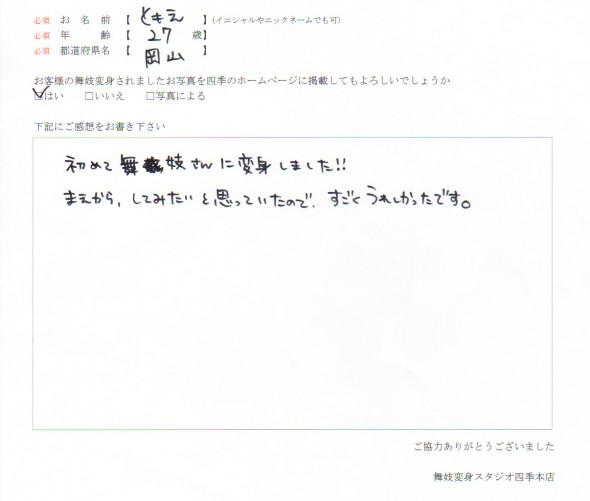 必須 お名前 【 ともえ 】(イニシャルやニックネームでも可)
必須 年齢 【 27 歳】
必須 都道府県名 【 岡山
お客様の舞妓変身されましたお写真を四季のホームページに掲載してもよろしいでしょうか
☑はい □いいえ □写真による
下記にご感想をお書き下さい
初めて舞妓さんに変身しました!!
まえから、してみたいと思っていたので、すごくうれしかったです。
ご協力ありがとうございました
舞妓変身スタジオ四季本店